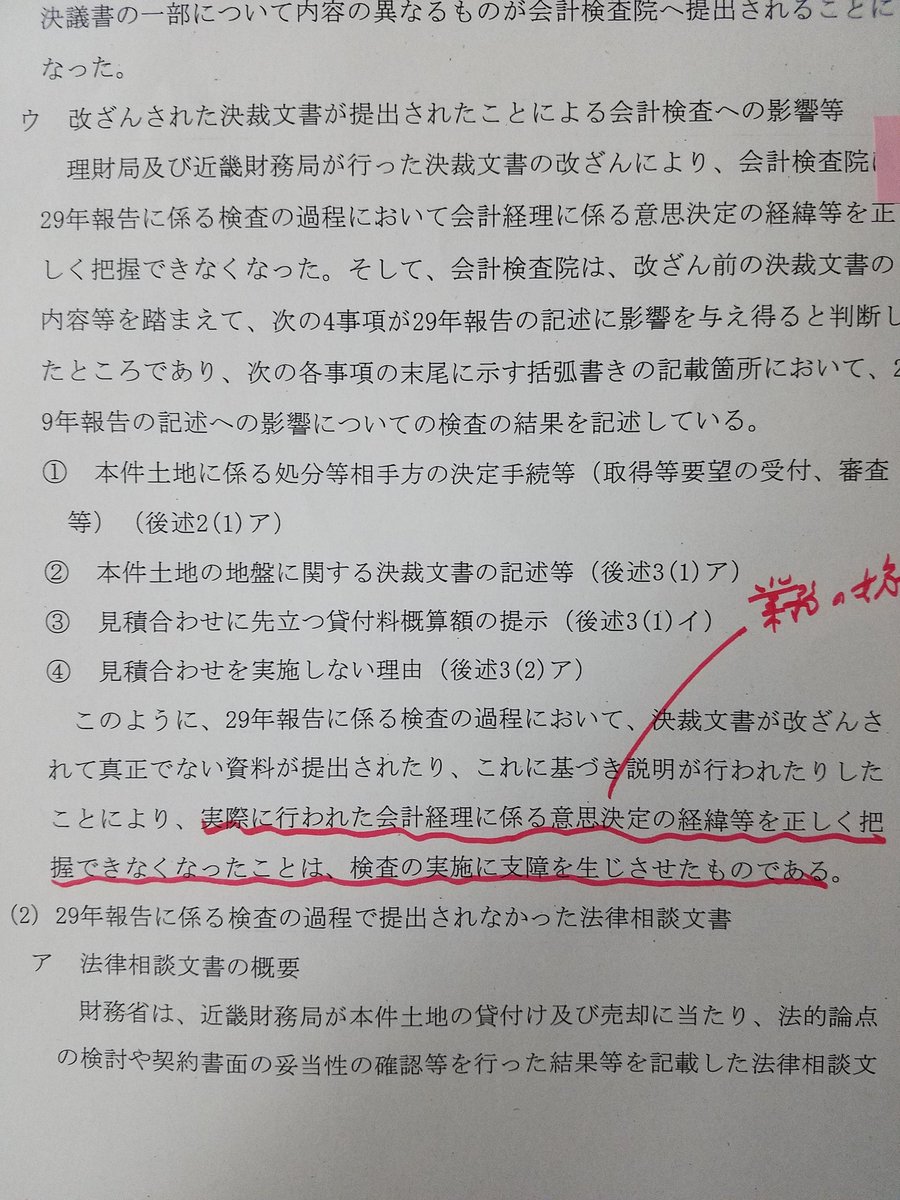 決議書の一部について内容の異なるものが会計検査院へ提出されることに
なった。
ウ　改ざんされた決裁文書が提出されたことによる会計検査への影響等
理財局及び近畿財務局が行った決裁文書の改ざんにより、会計検査院は
29年報告に係る検査の過程において会計経理に係る意思決定の経緯等を正
しく把握できなくなった。そして、会計検査院は、改ざん前の決裁文書の
内容等を踏まえて、次の4事項が29年報告の記述に影響を与え得ると判断し
たところであり、次の各事項の末尾に示す括弧書きの記載箇所において、2
9年報告の記述への影響についての検査の結果を記述している。
①　本件土地に係る処分等相手方の決定手続等（取得等要望の受付、審査
等）（後述2(1)ア）
②　本件土地の地盤に関する決裁文書の記述等（後述3(1)ア）
業務の
③　見積合わせに先立つ貸付料概算額の提示（後述3(1)イ）
④　見積合わせを実施しない理由（後述3(2)ア）
このように、29年報告に係る検査の過程において、決裁文書が改ざんさ
れて真正でない資料が提出されたり、これに基づき説明が行われたりした
ことにより、実際に行われた会計経理に係る意思決定の経緯等を正しく把
握できなくなったことは、検査の実施に支障を生じさせたものである。
(2)　29年報告に係る検査の過程で提出されなかった法律相談文書
ア　法律相談文書の概要
財務省は、近畿財務局が本件土地の貸付け及び売却に当たり、法的論点
の検討や契約書面の妥当性の確認等を行った結果等を記載した法律相談文